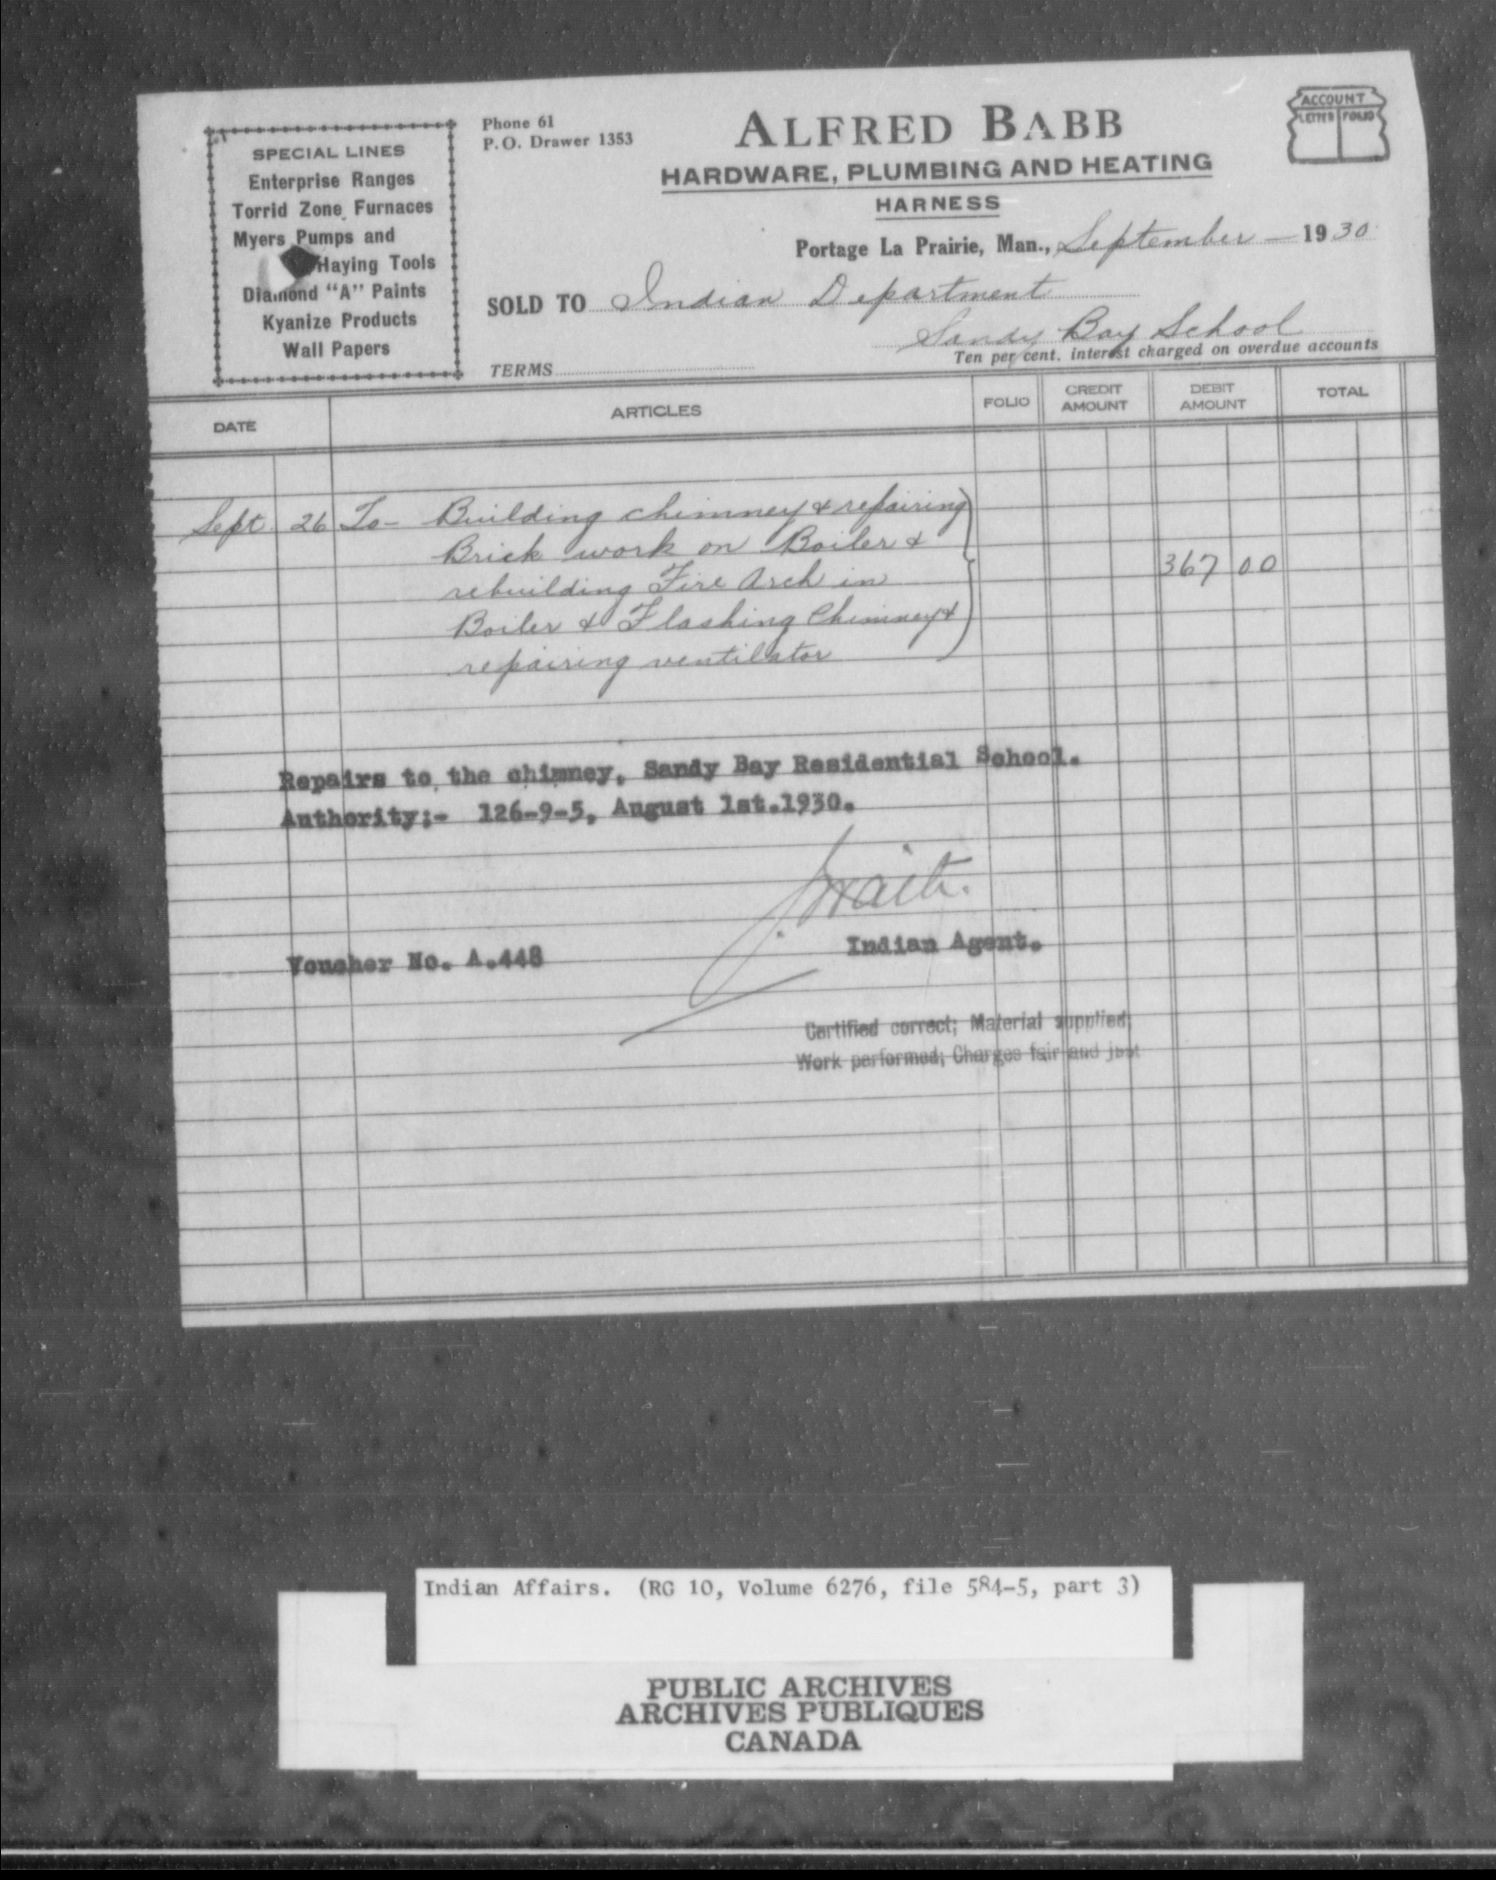 SPECIAL LINES
Enterprise Ranges
Torrid Zone Furnaces
Myers Pumps and
Haying Tools
Diamond "A" Paints
Kyanize Products
Wall Papers
Phone 61
P.O. Drawer 1353
ALFRED BABB
HARDWARE, PLUMBING AND HEATING
HARNESS
ACCOUNT
LETTER FOLIO
Portage La Prairie, Man., September — 1930
SOLD TO Indian Department
Sandy Bay School
Ten per cent. interest charged on overdue accounts
TERMS
DATE ARTICLES FOLIO CREDIT AMOUNT DEBIT AMOUNT TOTAL
Sept 26 To - Building chimney & repairing
Brick work on Boiler &
rebuilding Fire Arch in 367 00
Boiler & Flashing Chimney &
repairing ventilator
Repairs to the chimney, Sandy Bay Residential School.
Authority:- 126-9-5, August 1st.1930.
J. Waite.
Voucher No. A.448 Indian Agent.
Certified correct; Material supplied;
Work performed; Charges fair and just
Indian Affairs. (RG 10, Volume 6276, file 584-5, part 3)
PUBLIC ARCHIVES
ARCHIVES PUBLIQUES
CANADA